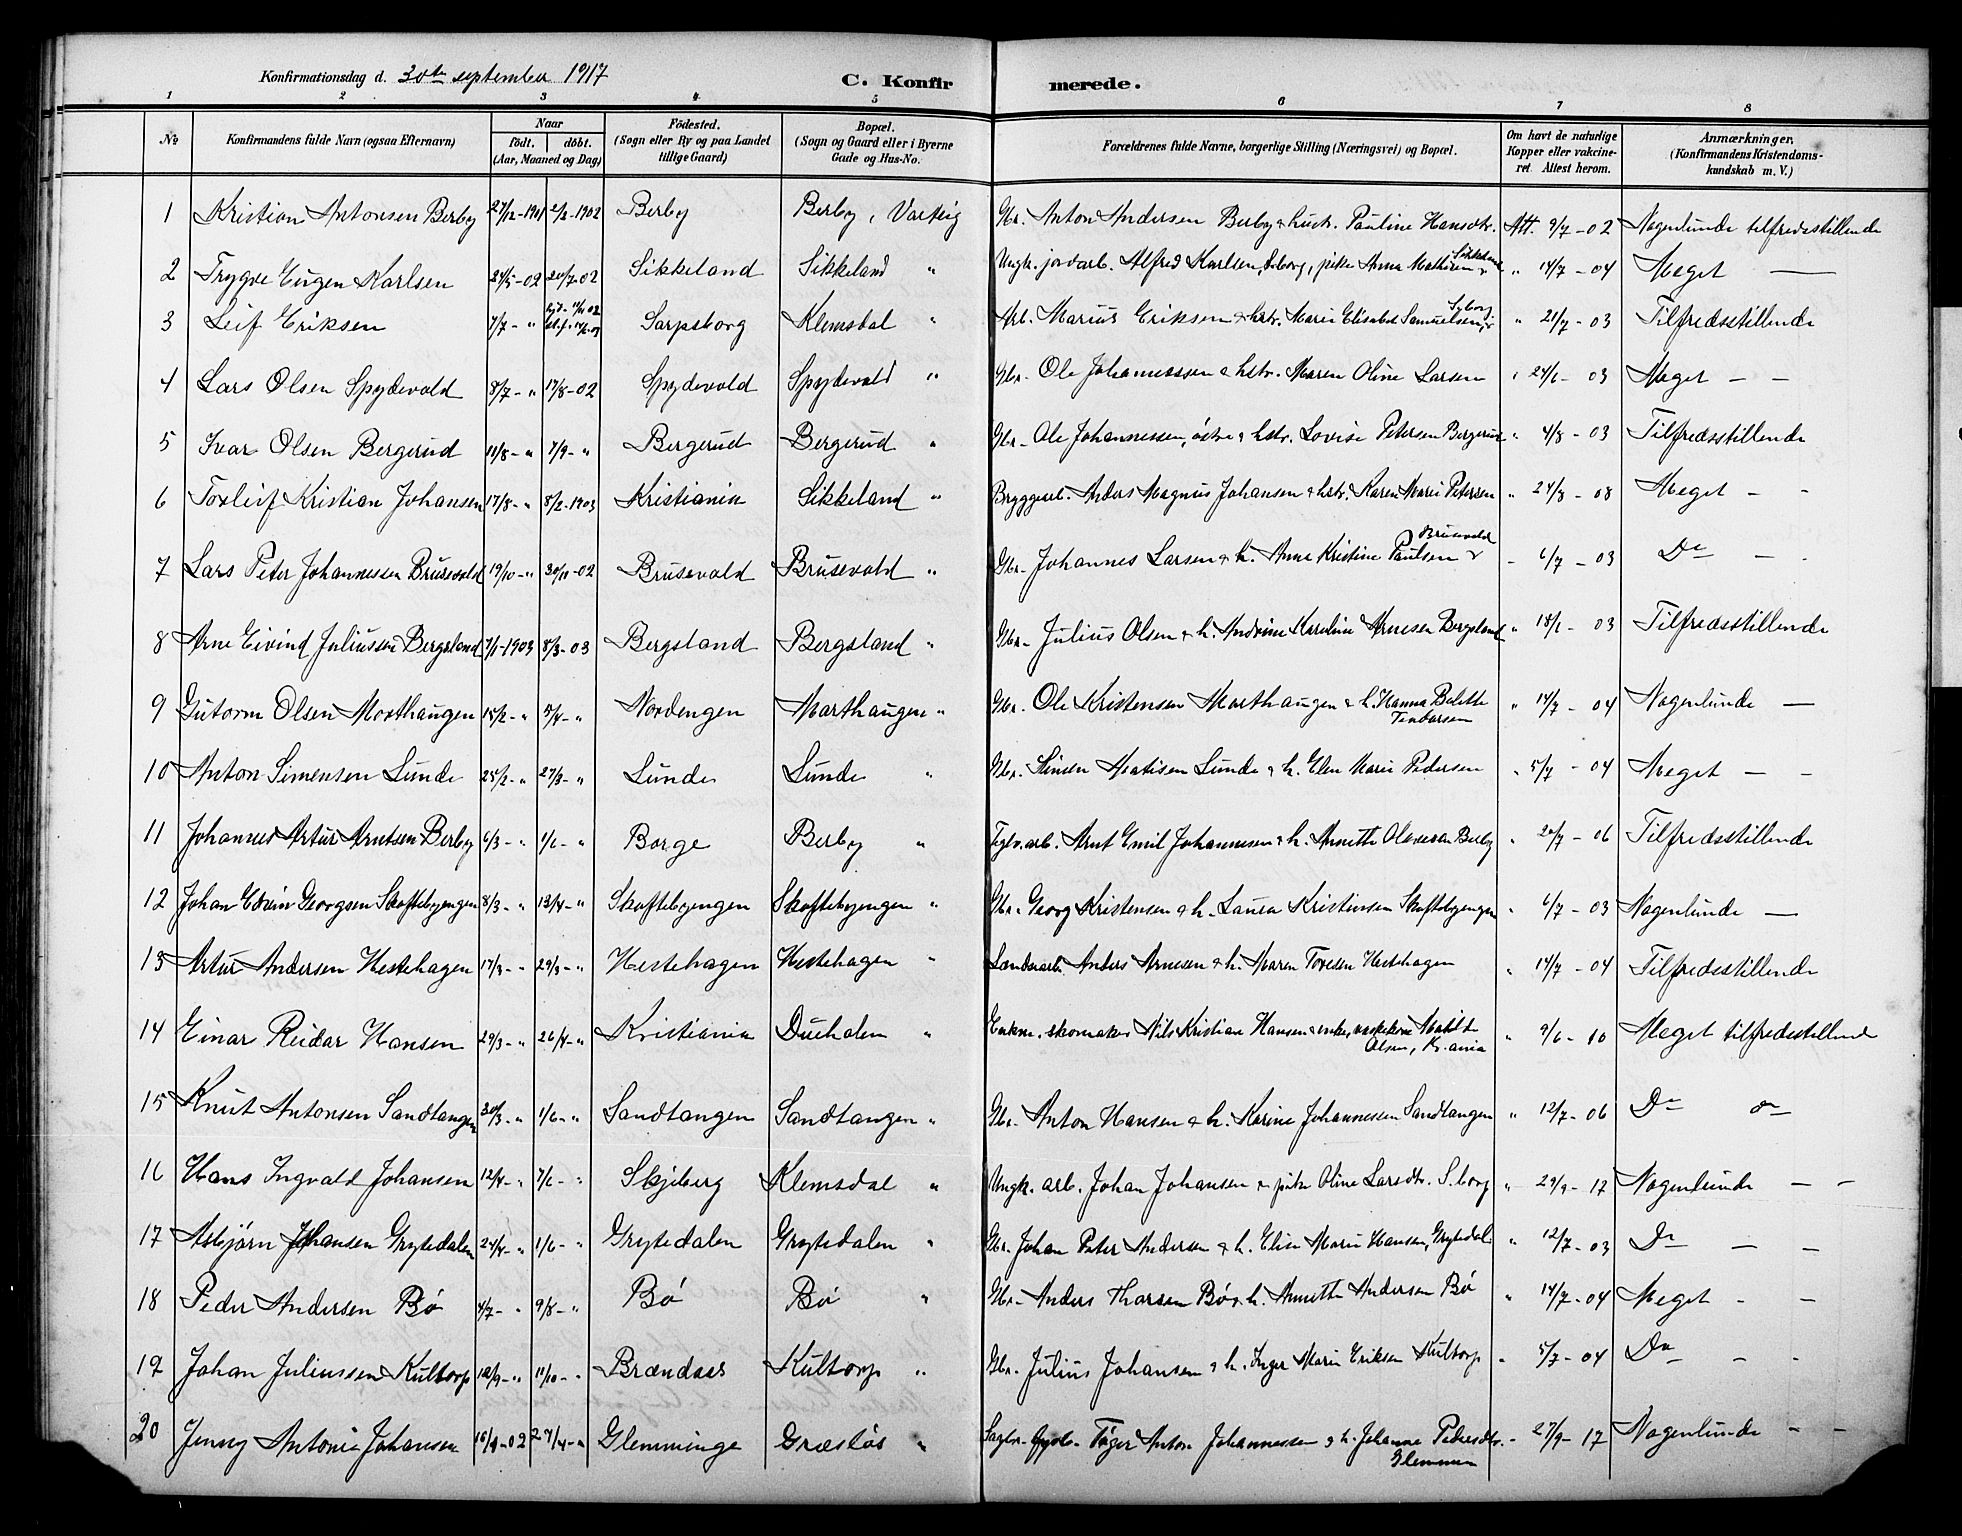 Konfirmationsdag d. 30te september 1917
C. Konfirmerede.
1 2 3 4 5 6 7 8
No
Konfirmandens fulde Navn (ogsaa Efternavn)
Naar
födt. döbt.
(Aar, Maaned og Dag)
Födested.
(Sogn eller By og paa Landet
tillige Gaard)
Bopæl.
(Sogn og Gaard eller i Byerne
Gade og Hus-No.
Forældrenes fulde Navne, borgerlige Stilling (Næringsvei) og Bopæl.
Om havt de naturlige
Kopper eller vakcine-
ret Attest herom.
Anmærkninger.
(Konfirmandens Kristendoms-
kundskab m. V.)
1 Kristian Antonsen Berby 27/12-1901 2/2-1902 Berby Berby, Varteig Gbr. Anton Andersen Berby & hustr. Pauline Hansdtr. Att. 9/7-02 Nogenlunde tilfredsstillende
2 Trygve Eugen Karlsen 24/5-02 20/7-02 Sikkeland Sikkeland " Ungk. jordarb. Alfred Karlsen, S.borg, pike Anna Mathisen Sikkeland " 14/7-04 Meget —
3 Leif Eriksen 7/7-" Sarpsborg Klemsdal " Arb. Marius Eriksen & hstr. Marie Elisabet Samuelsen, S.borg " 21/7-03 Tilfredsstillende
4 Lars Olsen Spydevold 8/7-" 17/8-02 Spydevold Spydevold " Gbr. Ole Johannessen & hstr. Maren Oline Larsen " 24/6-03 Meget — —
5 Ivar Olsen Bergerud 11/8-" 7/9-" Bergerud Bergerud " Gbr. Ole Johannessen, østre & hstr. Lovise Petersen Bergerud " 4/8-03 Tilfredsstillende
6 Torleif Kristian Johansen 17/8-" 8/2-1903 Kristiania Sikkeland " Bryggearb. Anders Magnus Johansen & hstr. Karen Marie Petersen " 24/8-08 Meget - -
7 Lars Peter Johannessen Brusevold 19/10-" 30/11-02 Brusevold Brusevold " Gbr. Johannes Larsen & h. Anna Kristine Paulsen Brusevold - 6/7-03 Do — -
8 Arne Eivind Juliussen Bergsland 7/1-1903 8/3-03 Bergsland Bergsland " Gbr. Julius Olsen & h. Andrine Karoline Arnesen Bergsland " 18/6-03 Tilfredsstillende
9 Gutorm Olsen Morthaugen 15/2-" 5/4-" Nordengen Morthaugen " Gbr. Ole Kristensen Morthaugen & h. Hanna Bolette
" 14/7-04 Nogenlunde —
10 Anton Simensen Lunde 25/2-" 27/3-" Lunde Lunde " Gbr. Simen Matisen Lunde & h. Elen Marie Pedersen " 5/7-04 Meget — -
11 Johannes Artur Arntsen Berby 6/3-" 1/6-" Borge Berby " Teglv.arb. Arnt Emil Johannesen & h. Annette Olavesen Berby " 20/7-06 Tilfredsstillende
12 Johan Edvin Georgsen Skoftebyengen 8/3-" 13/4-" Skoftebyengen Skoftebyengen " Gbr. Georg Kristensen & h. Laura Kristiansen Skoftebyengen " 6/7-03 Nogenlunde —
13 Artur Andersen Hestehagen 17/3-" 29/3-" Hestehagen Hestehagen " Anders Arnesen & h. Maren Toresen Hestehagen " 14/7-04 Tilfredsstillende
14 Einar Reidar Hansen 29/3-" 26/4-" Kristiania Duehalen " Enkem. skomaker Nils Kristian Hansen & enke, vaskekone Matilde
Olsen, Kr.ania " 9/6-10 Meget tilfredsstillende
15 Knut Antonsen Sandtangen 30/3-" 1/6-" Sandtangen Sandtangen " Gbr. Anton Hansen & h. Karine Johannessen Sandtangen " 12/7-06 Do do
16 Hans Ingvald Johansen 12/4-" 7/6-" Skjeberg Klemsdal " Ungk. arb. Johan Johansen & pike Oline Larsdtr. S.borg " 29/9-17 Nogenlunde — -
17 Asbjørn Johansen Grytedalen 24/4-" 1/6-" Grytedalen Grytedalen " Gbr. Johan Peter Andersen & h. Elise Marie Hansen, Grytedal " 12/7-03 Do — —
18 Peder Andersen Bø 4/7-" 9/8-" Bø Bø " Gbr. Anders Thorsen Bø & h. Annette Andersen Bø " 14/7-04 Meget - —
19 Johan Juliussen Kultorp 12/9-" 11/10-" Brændaas Kultorp " Gbr. Julius Johansen & h. Inger Marie Eriksen Kultorp " 5/7-04 Do - -
20 Jenny Antonie Johansen 27/4-" Glemminge Græsløs " Anton Johannessen & h. Johanne Pedersdtr.
Glemmen - 27/9-17 Nogenlunde - -